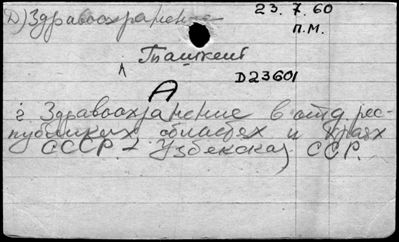 Д) Здравоохранение
23.7.60
П.М.
Ташкент
D23601
А
2 Здравоохранение в отд. рес-
публиках областях и краях
СССР - Узбекская ССР.